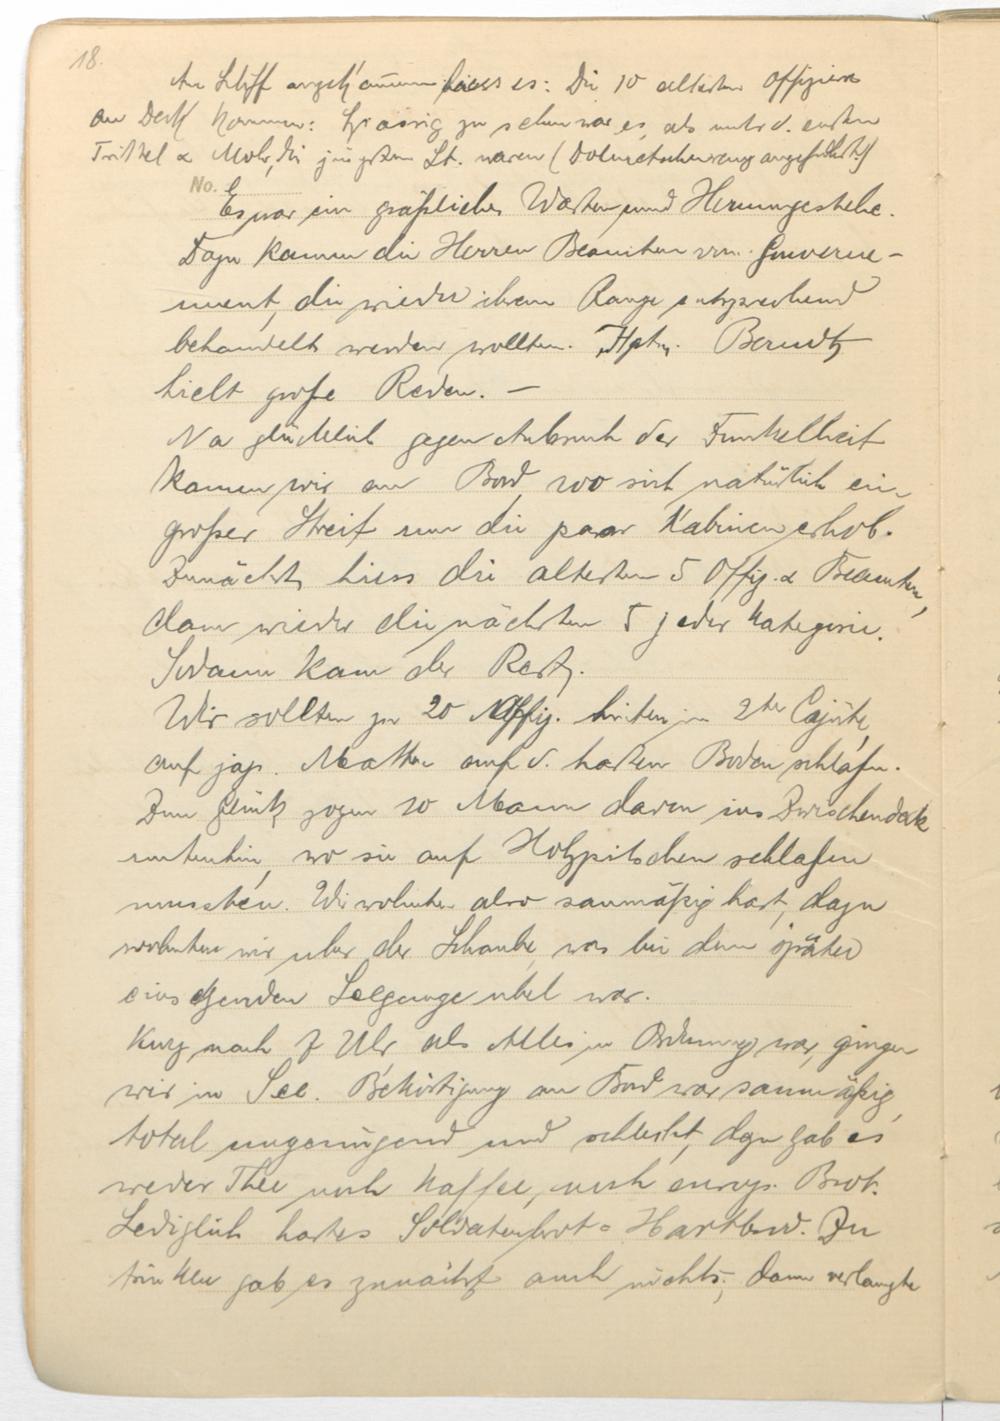 18.
Am Schiff angekommen hiess es: Die 10 altesten Offiziere
an Deck kommen: Spassig zu sehen war es, als unter d. ersten
Trittel & Mohr, die jüngsten Lt. waren (Dolmetscher angeführt!)
No.
Es war ein gräßliches Warten und Herumgestehe.
Dazu kamen die Herren Beamten vom Gouverne-
ment, die wieder ihrem Range entsprechend
behandelt werden wollten. Hptm. Berndt
hielt große Reden. —
Na glücklich gegen Anbruch der Dunkelheit
kamen wir an Bord, wo sich natürlich ein
großer Streit um die paar Kabinen erhob.
Zunächst hiess die altesten 5 Offiz. & Beamten,
dann wieder die nächsten 5 jeder Kategorie.
Sodann kam der Rest.
Wir sollten zu 20 Offiz. hinten in 2ter Cajüte
auf jap. Matten auf d. harten Boden schlafen.
Zum Glück zogen 10 Mann davon ins Zwischendeck
untenhin, wo sie auf Holzpritschen schlafen
mussten. Wir wohnten also saumäßig hart, dazu
wohnten wir uber der Schraube, was bei dem später
einsetzenden Seegange ubel war.
Kurz nach 7 Uhr als Alles in Ordnung war, gingen
wir in See. Beköstigung an Bord war saumäßig,
total ungenügend und schlecht, dazu gab es
weder Thee noch Kaffee, noch europ. Brot.
Lediglich hartes Soldatenbrot = Hartbrod. Zu
trinken gab es zunächst auch nichts, dann verlangte